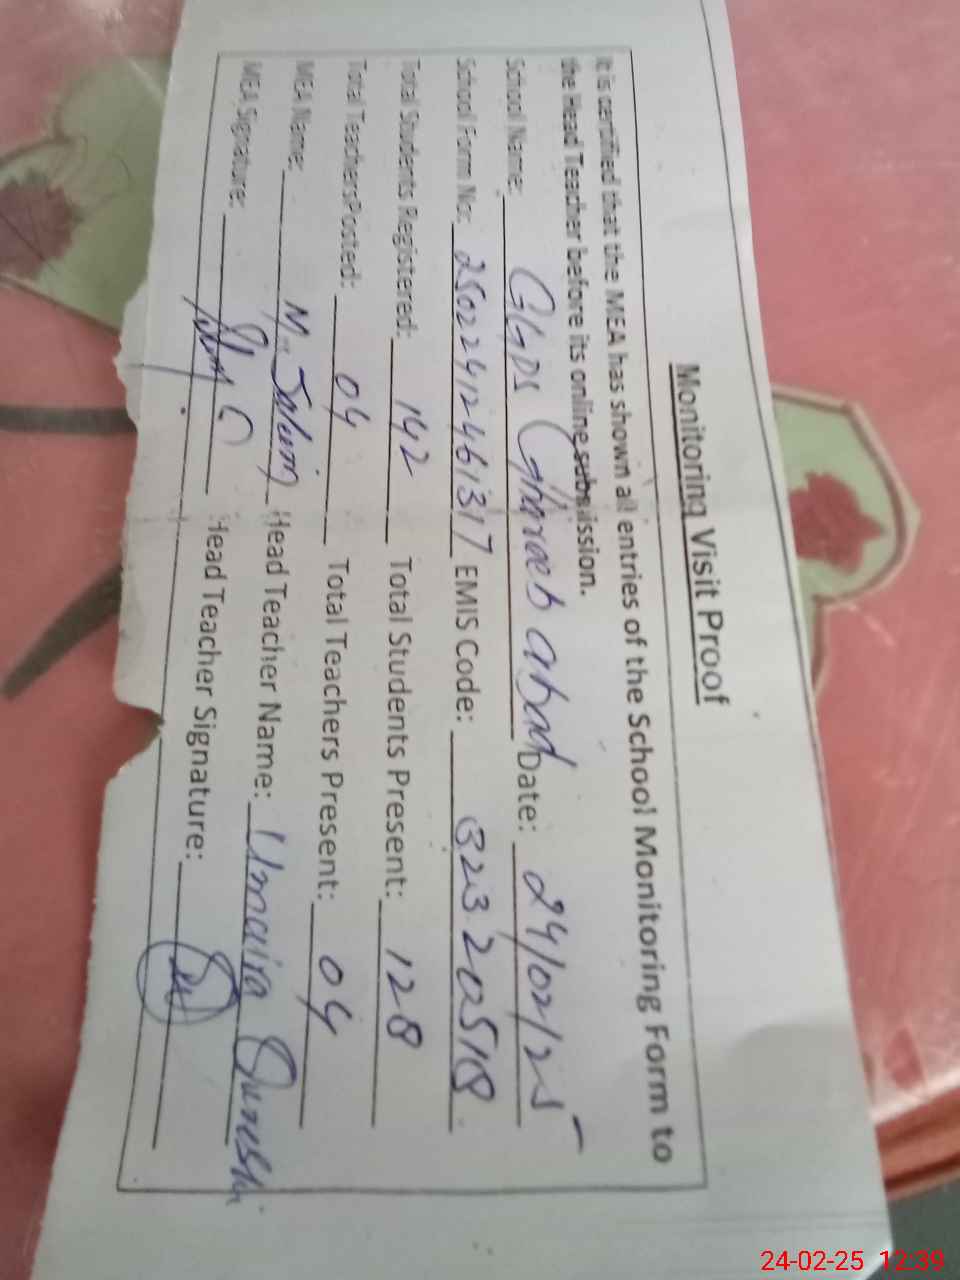 Monitoring Visit Proof
It is certified that the MEA has shown all entries of the School Monitoring Form to
the Head Teacher before its online submission.
School Name: GGPS Ghareeb abad Date: 24/02/25
School Form No: 250224124461317 EMIS Code: 32320518
Total Students Registered: 142 Total Students Present: 128
Total Teachers Posted: 04 Total Teachers Present: 04
MEA Name: M. Salim Head Teacher Name: Umaira Qureshi
MEA Signature: Head Teacher Signature:
24-02-25 12:39